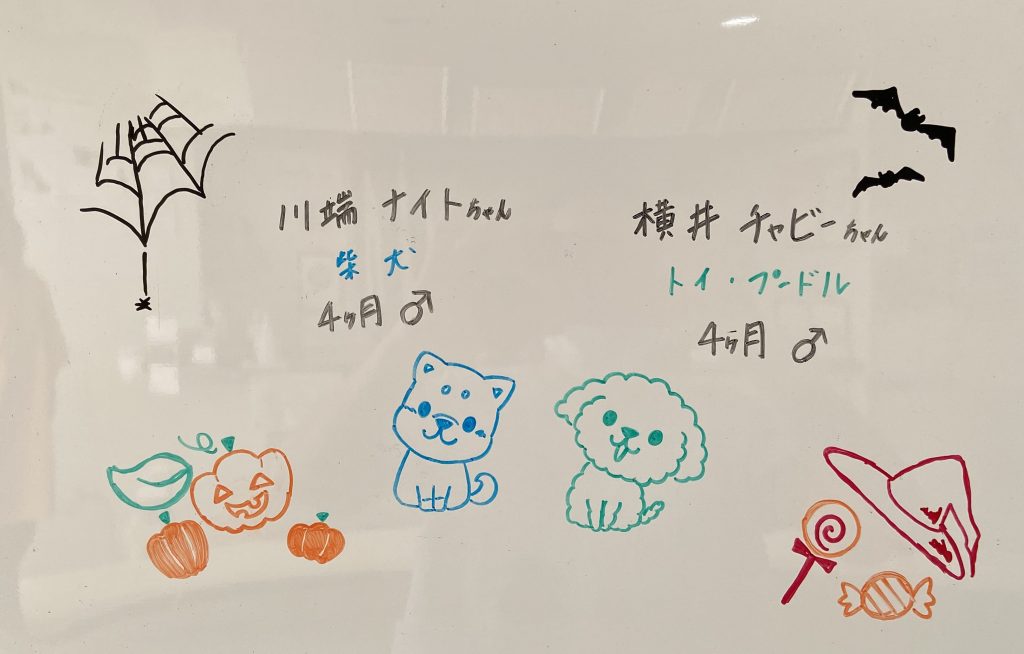 川端 ナイトちゃん
柴犬
4ヶ月 ♂
横井 チャビーちゃん
トイ・プードル
4ヶ月 ♂